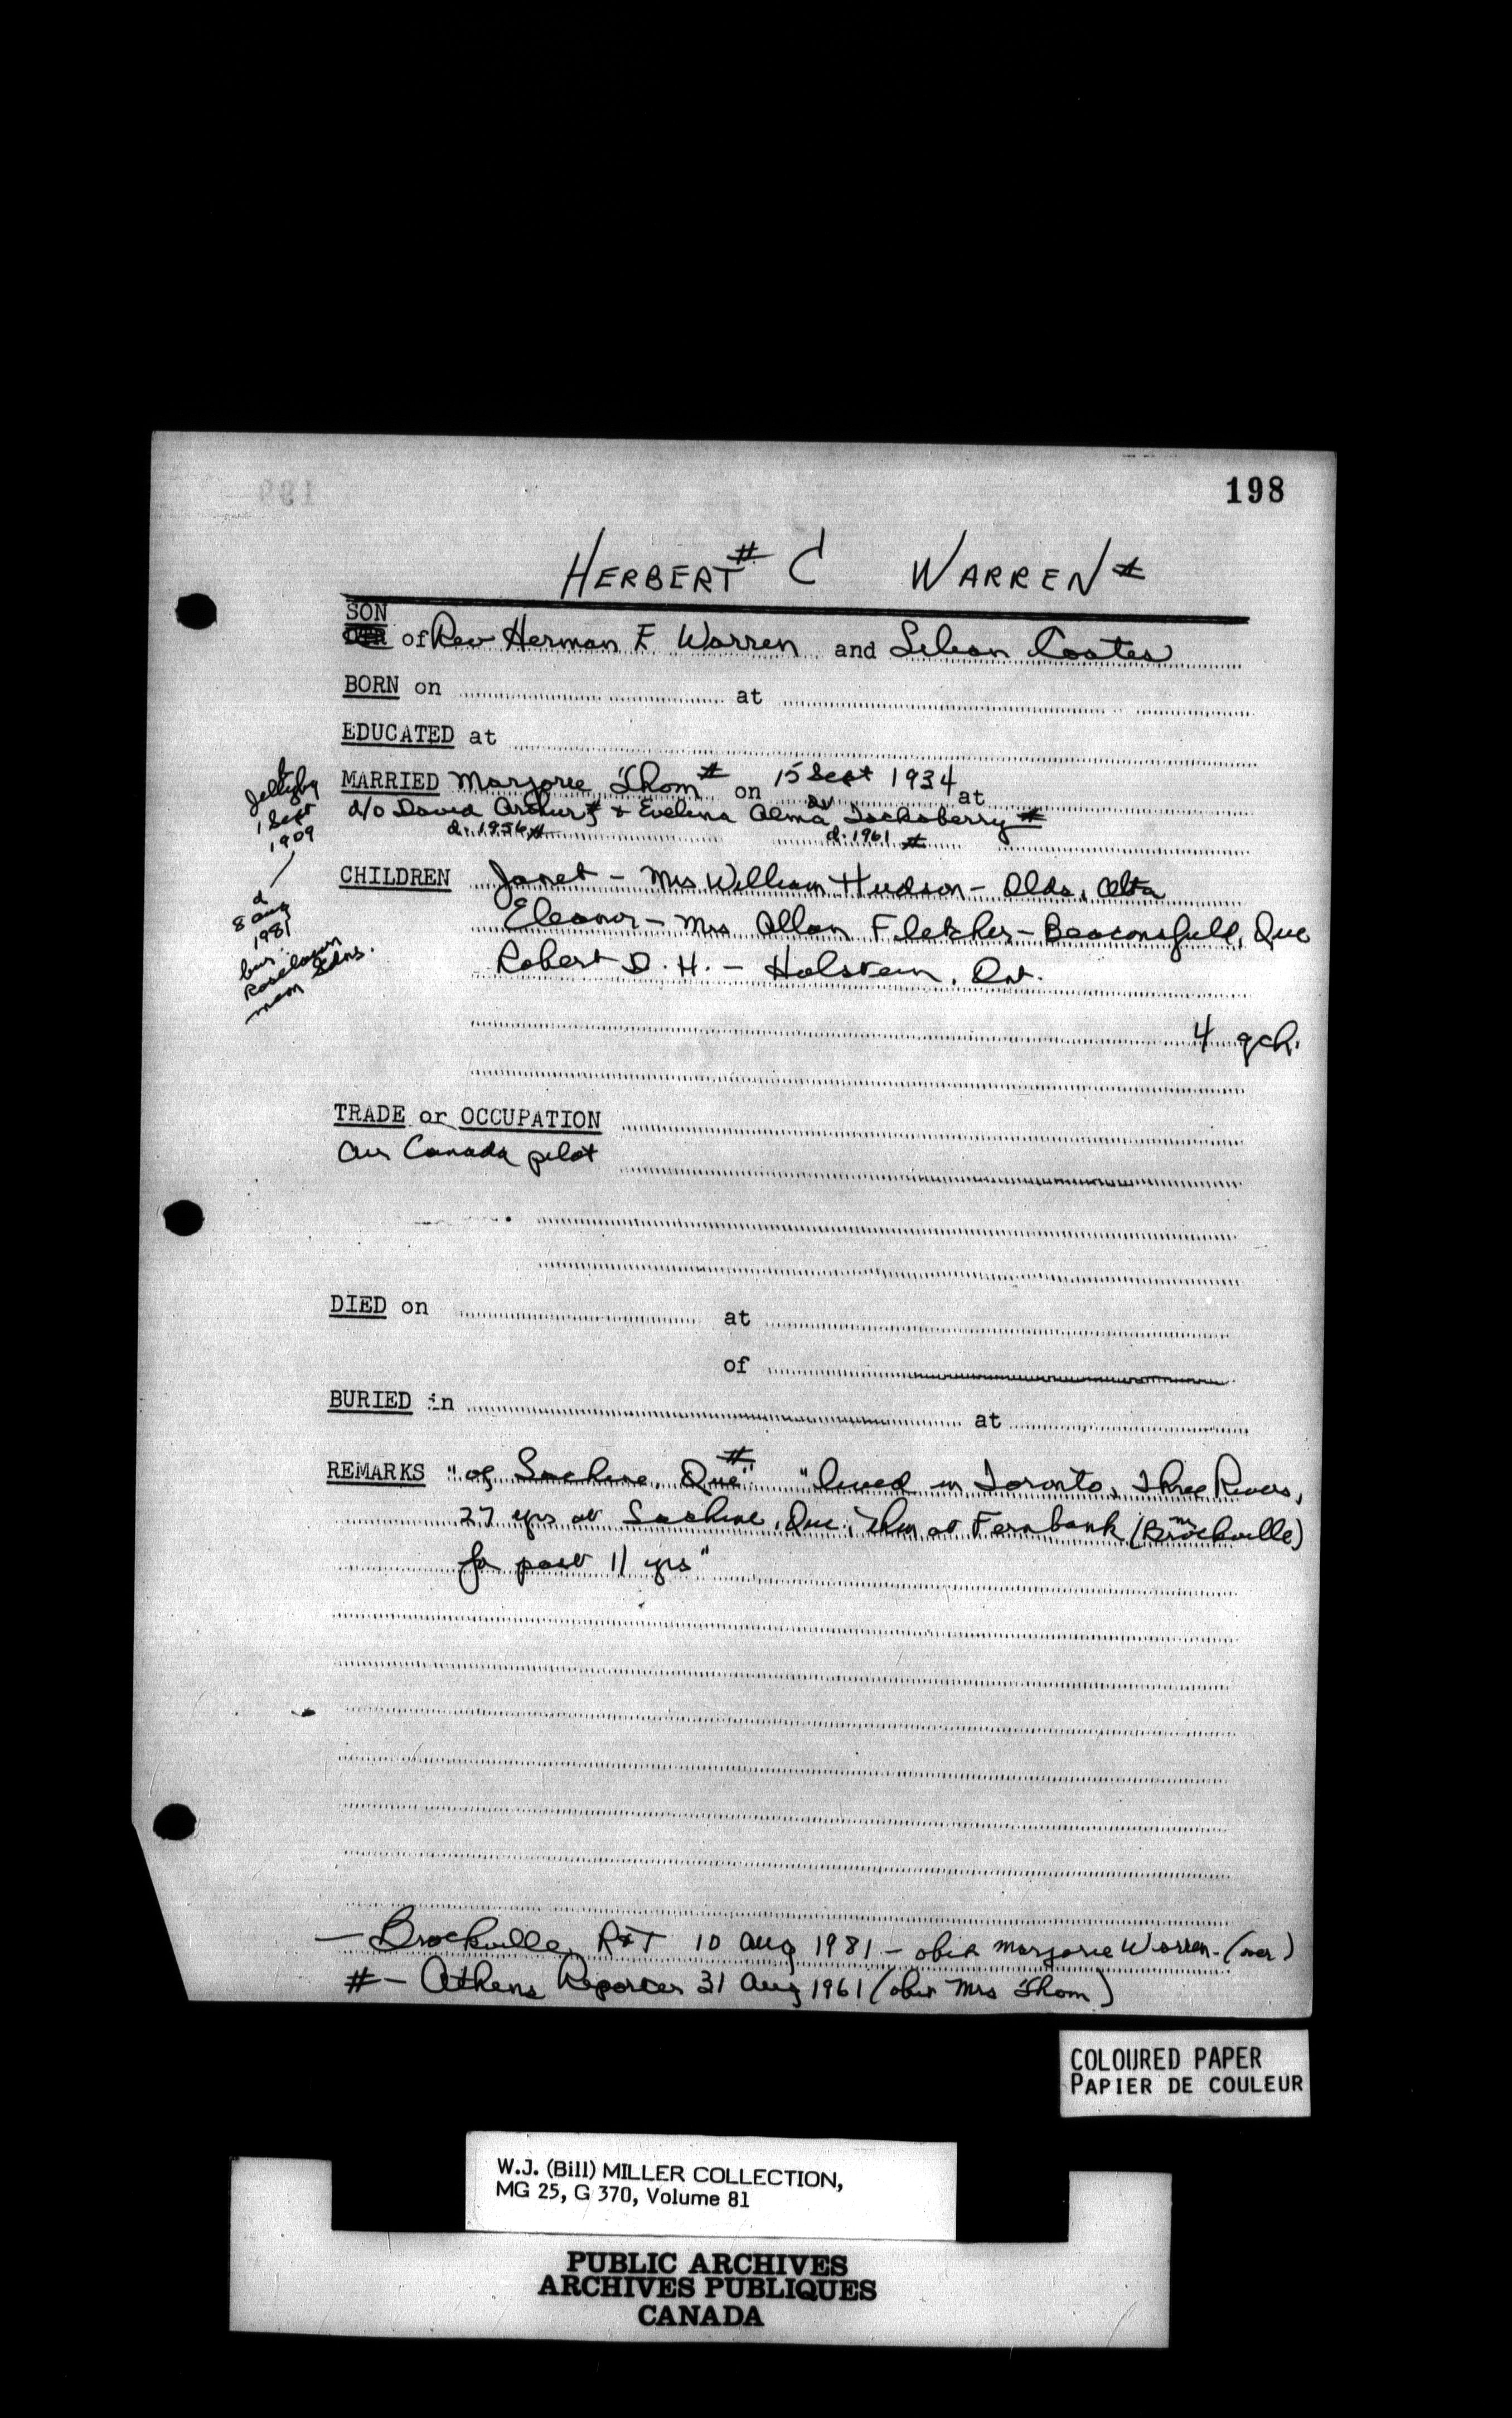 198
HERBERT # C WARREN #
SON
of Rev Herman F Warren and Lilean Coates
BORN on at
EDUCATED at
MARRIED Marjorie Thom # on 15 Sept 1934 at
b
Jellyby
1 Sept
1909
d/o David Arthur # & Evelina Alma Jackaberry #
d. 1956 # d. 1961 #
d
8 aug
1981
bur.
Roselawn
mem Gdns.
CHILDREN Janet - Mrs William Hudson - Olds, Alta
Eleanor - Mrs Allan Fletcher - Beaconsfield, Que
Robert D. H. - Holstein, Ont.
4 gch.
TRADE or OCCUPATION
Air Canada pilot
DIED on at
of
BURIED in at
REMARKS "of Lachine, Que" # "lived in Toronto, Three Rivers,
27 yrs at Lachine, Que; then at Fernbank (Brockville)
for past 11 yrs"
- Brockville R&T 10 aug 1981 - obit Marjorie Warren - (over)
# - Athens Reporter 31 Aug 1961 (obit Mrs Thom)
COLOURED PAPER
PAPIER DE COULEUR
W.J. (Bill) MILLER COLLECTION,
MG 25, G 370, Volume 81
PUBLIC ARCHIVES
ARCHIVES PUBLIQUES
CANADA